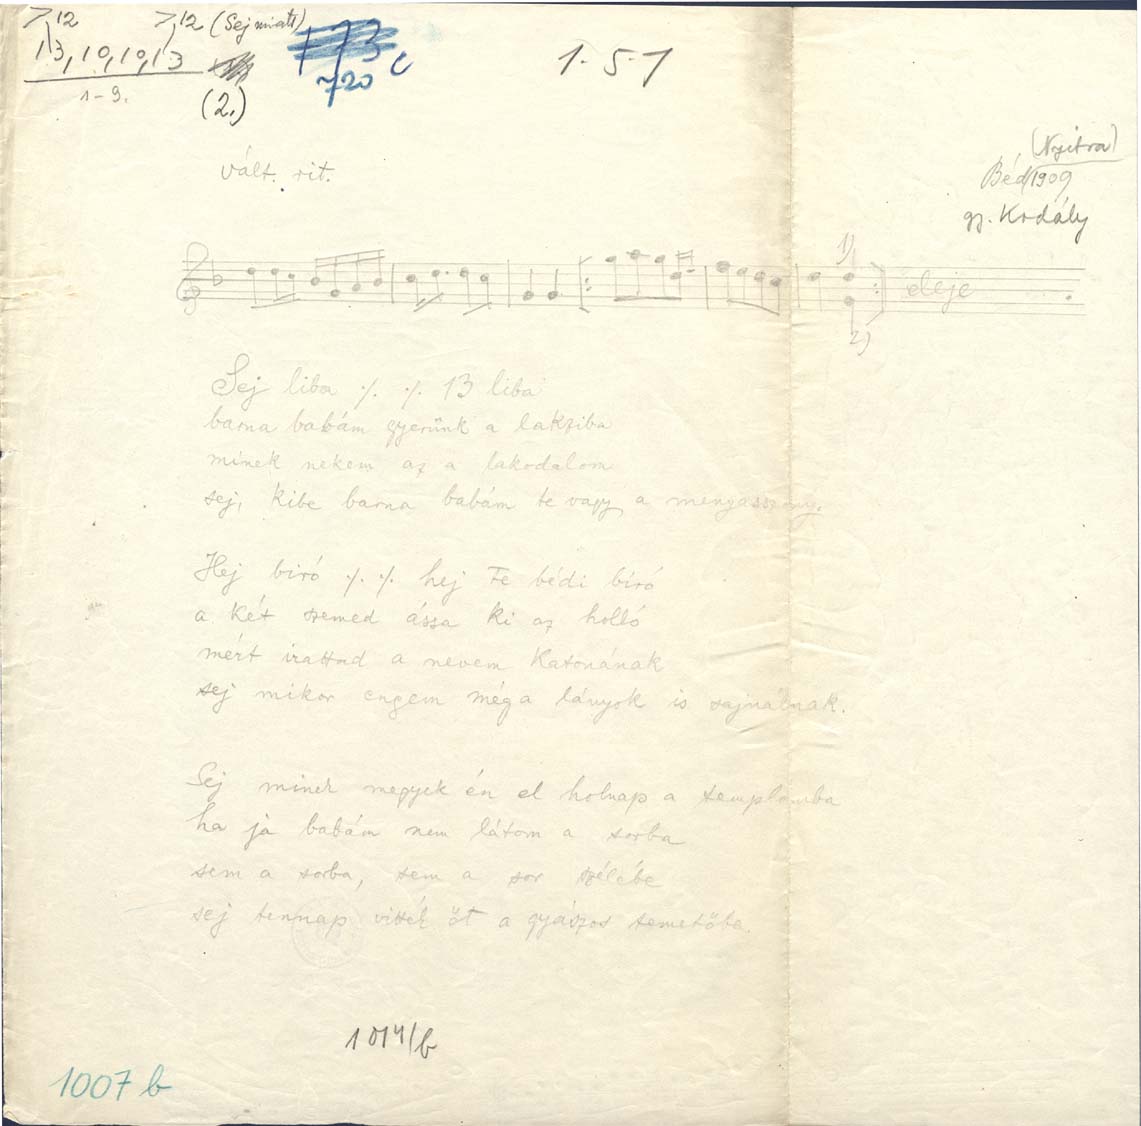 >12 >12 (Sej miatt)
13, 10, 10, 13
1-9.
(2.)
173 c
720
1-5-1
(Nyitra)
Béd 1909
gy. Kodály
vált. rit.
1)
eleje
2)
Sej liba ·/. ·/. 13 liba
barna babám gyerünk a lakziba
minek nekem az a lakodalom
sej, kibe barna babám te vagy a menyasszony.
Hej biró ·/. ·/. hej Te bédi bíró
a két szemed ássa ki az holló
mért irattad a nevem Katonának
sej mikor engem méga lányok is sajnálnak.
Sej minek megyek én el holnap a templomba
ha jà babám nem látom a sorba
sem a sorba, sem a sor szélébe
sej tennap vitték őt a gyászos temetőbe.
1014/b
1007 b